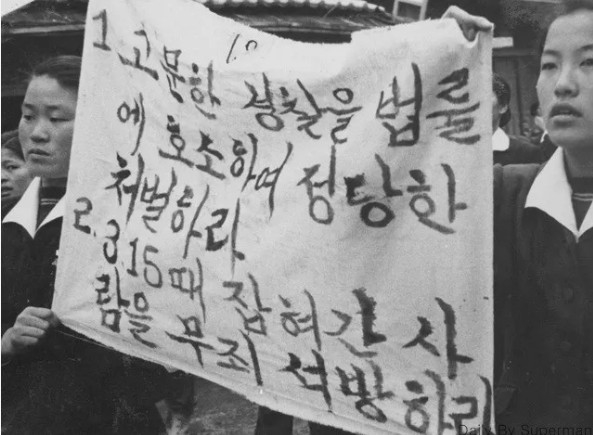 1 고문한 경찰을 법률
에 호소하여 정당한
처벌하라
2. 3.15때 잡혀간 사
람을 무죄 석방하라
Daily By